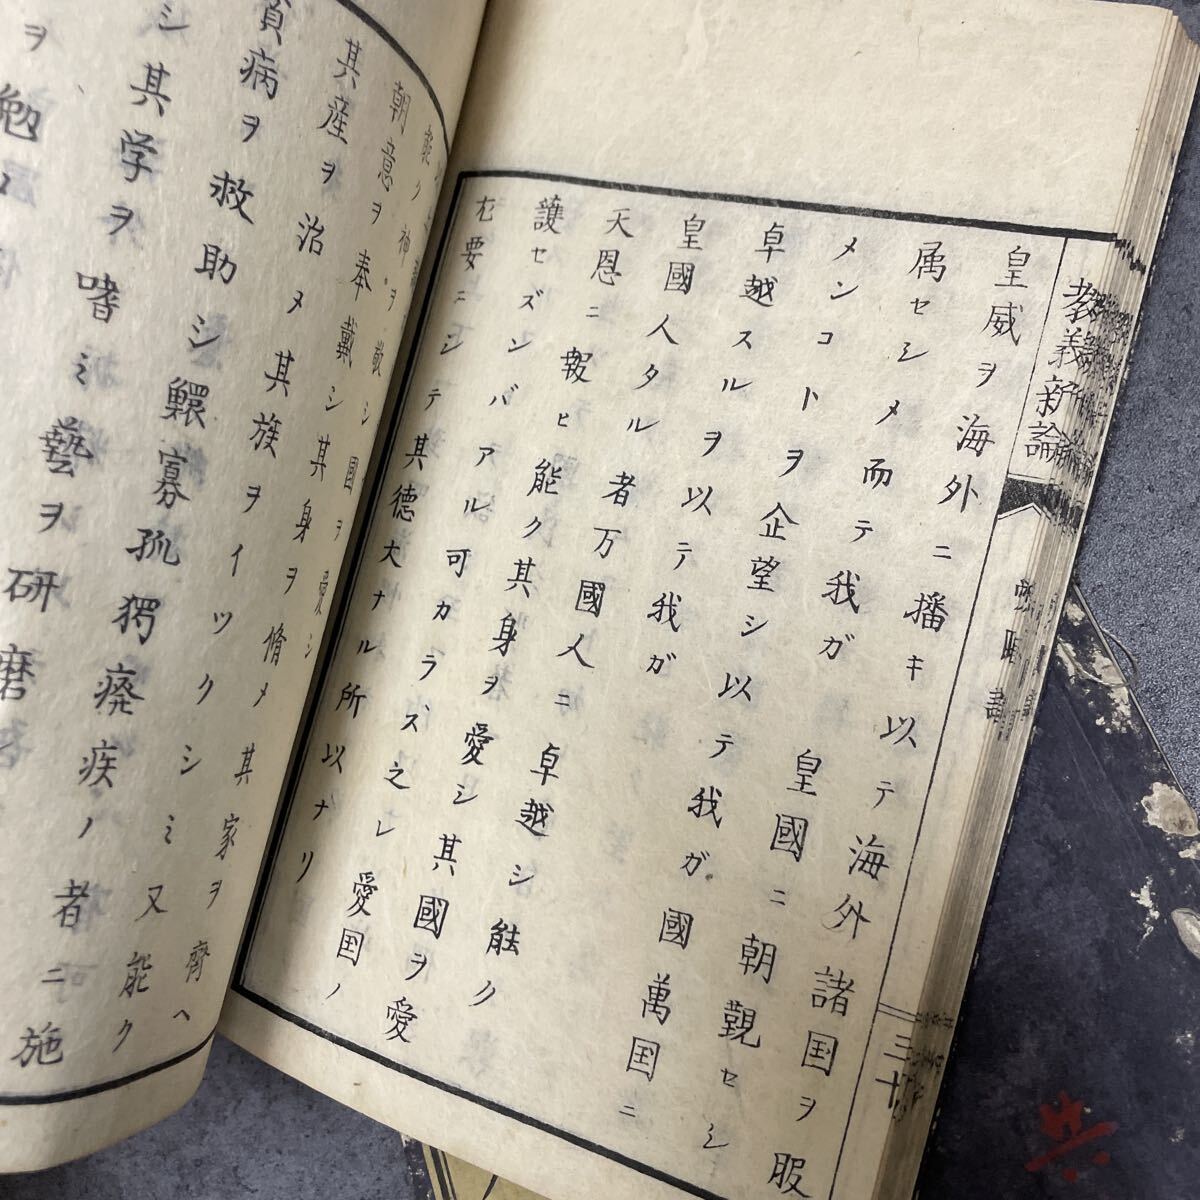 教義新論
三十
皇威ヲ海外ニ播キ以テ海外諸国ヲ服
属セシメ而テ我ガ 皇國ニ朝觀セシ
メンコトヲ企望シ以テ我ガ國萬国ニ
卓越スルヲ以テ我ガ
皇國人タル者万國人ニ卓越シ能ク
天恩ニ報ヒ能ク其身ヲ愛シ其國ヲ愛
護セズンバアル可カラズ之レ愛国ノ
尤要ニシテ其德大ナル所以ナリ
能ク神ヲ敬シ國ヲ愛シ
朝意ヲ奉戴シ其身ヲ脩メ其家ヲ齊ヘ
其産ヲ治メ其族ヲイツクシミ又能ク
貧病ヲ救助シ鰥寡孤独癈疾ノ者ニ施
シ其学ヲ嗜ミ藝ヲ研磨
ヲ勉